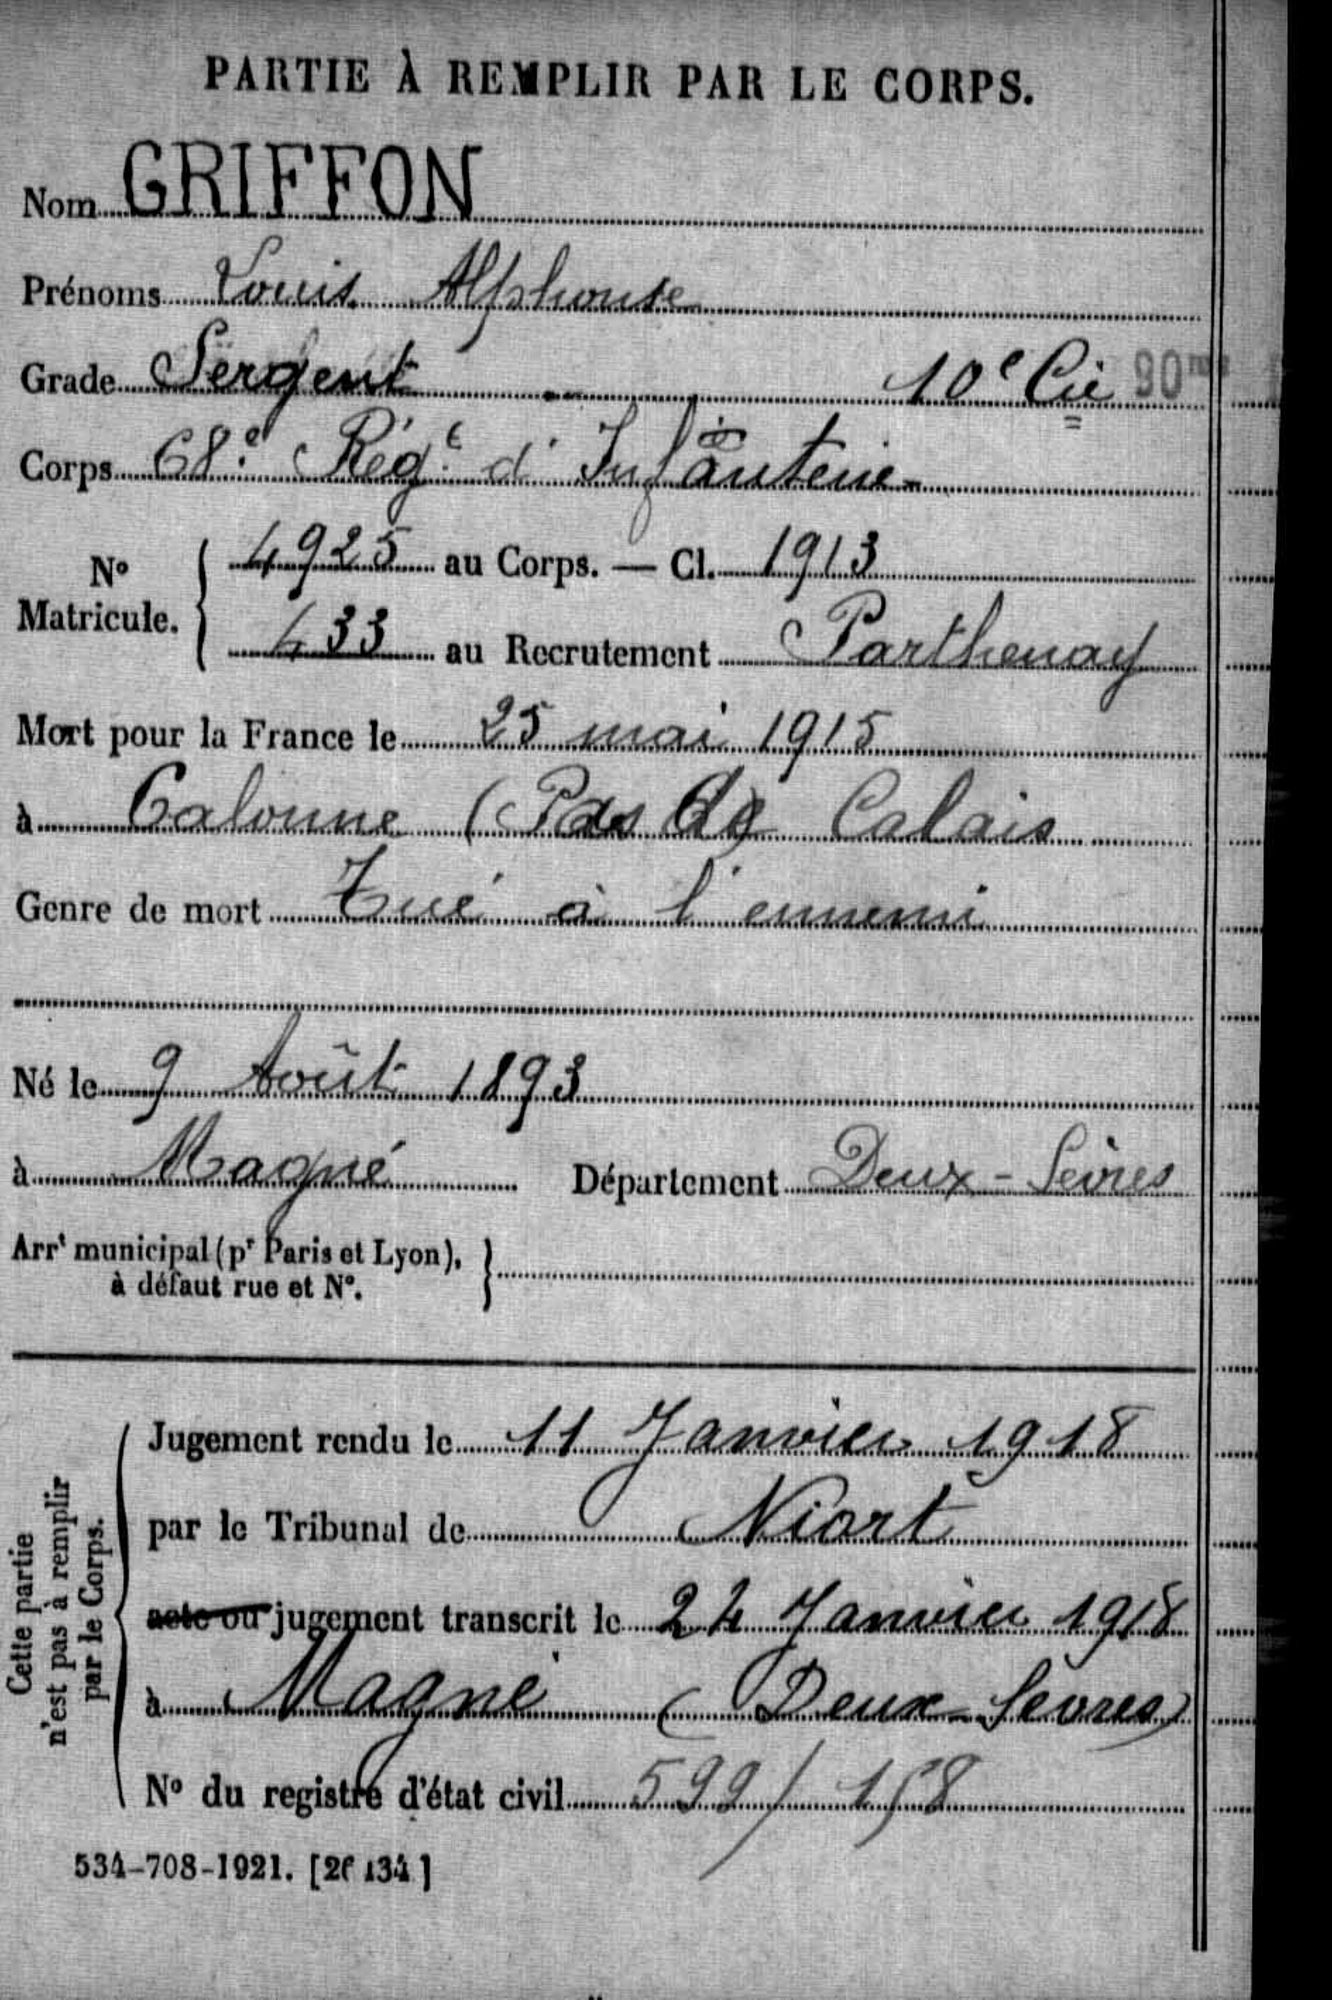 PARTIE À REMPLIR PAR LE CORPS.
Nom GRIFFON
Prénoms Louis Alphonse
Grade Sergent 10e Cie 90me
Corps 68e Régt d'Infanterie
No Matricule. 4925 au Corps. — Cl. 1913
433 au Recrutement Parthenay
Mort pour la France le 25 mai 1915
à Calonne (Pas de) Calais
Genre de mort Tué à l'ennemi
Né le 9 Août 1893
à Magné Département Deux-Sèvres
Arrt municipal (pr Paris et Lyon),
à défaut rue et No.
Cette partie
n'est pas à remplir
par le Corps.
Jugement rendu le 11 Janvier 1918
par le Tribunal de Niort
acte ou jugement transcrit le 24 Janvier 1918
à Magné (Deux-Sèvres)
No du registre d'état civil 599/158
534-708-1921. [26134]